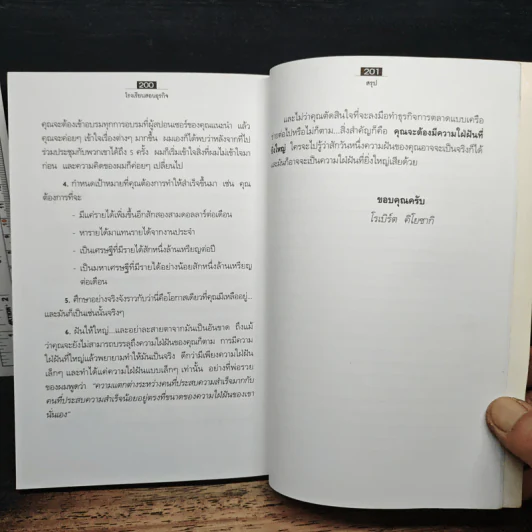 200
โรงเรียนสอนธุรกิจ
คุณจะต้องเข้าอบรมทุกการอบรมที่ผู้สปอนเซอร์ของคุณแนะนำ แล้ว
คุณจะค่อยๆ เข้าใจเรื่องต่างๆ มากขึ้น ผมเองก็ได้พบว่าหลังจากที่ไป
ร่วมประชุมกับพวกเขาได้ถึง 5 ครั้ง ผมก็เริ่มเข้าใจสิ่งที่ผมไม่เข้าใจมา
ก่อน และความคิดของผมก็ค่อยๆ เปลี่ยนไป
4. กำหนดเป้าหมายที่คุณต้องการทำให้สำเร็จขึ้นมา เช่น คุณ
ต้องการที่จะ
- มีแค่รายได้เพิ่มขึ้นอีกสักสองสามดอลลาร์ต่อเดือน
- หารายได้มาแทนรายได้จากงานประจำ
- เป็นเศรษฐีที่มีรายได้สักหนึ่งล้านเหรียญต่อปี
- เป็นมหาเศรษฐีที่มีรายได้อย่างน้อยสักหนึ่งล้านเหรียญ
ต่อเดือน
5. ศึกษาอย่างจริงจังราวกับว่านี่คือโอกาสเดียวที่คุณมีเหลืออยู่...
และมันก็เป็นเช่นนั้นจริงๆ
6. ฝันให้ใหญ่...และอย่าละสายตาจากมันเป็นอันขาด ถึงแม้
ว่าคุณจะยังไม่สามารถบรรลุถึงความใฝ่ฝันของคุณก็ตาม การมีความ
ใฝ่ฝันที่ใหญ่แล้วพยายามทำให้มันเป็นจริง ดีกว่ามีเพียงความใฝ่ฝัน
เล็กๆ และทำได้แค่ความใฝ่ฝันแบบเล็กๆ เท่านั้น อย่างที่พ่อรวย
ของผมพูดว่า "ความแตกต่างระหว่างคนที่ประสบความสำเร็จมากกับ
คนที่ประสบความสำเร็จน้อยอยู่ตรงที่ขนาดของความใฝ่ฝันของเขา
นั่นเอง"
201
สรุป
และไม่ว่าคุณตัดสินใจที่จะลงมือทำธุรกิจการตลาดแบบเครือ
ข่ายต่อไปหรือไม่ก็ตาม...สิ่งสำคัญก็คือ คุณจะต้องมีความใฝ่ฝันที่
ยิ่งใหญ่ ใครจะไปรู้ว่าสักวันหนึ่งความฝันของคุณอาจจะเป็นจริงก็ได้
และมันก็อาจจะเป็นความใฝ่ฝันที่ยิ่งใหญ่เสียด้วย
ขอบคุณครับ
โรเบิร์ต คิโยซากิ